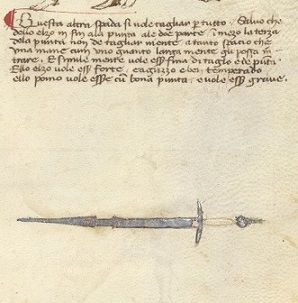 Questa altra spada si vole tagliar per tutto, Salvo che
dello elzo in fin ala punta ale doe parte, i mezo la terza
dela punta non de tagliar mente, a tanto spatio che
una mane cum uno guanto langa mente gli possa in
trare. E simile mente vole esser fina di taglo e de puta.
Ello elzo vole esser forte, e aguzzo e bei temperado
ello pomo vole esse cu bona punta, e vole esser grave.